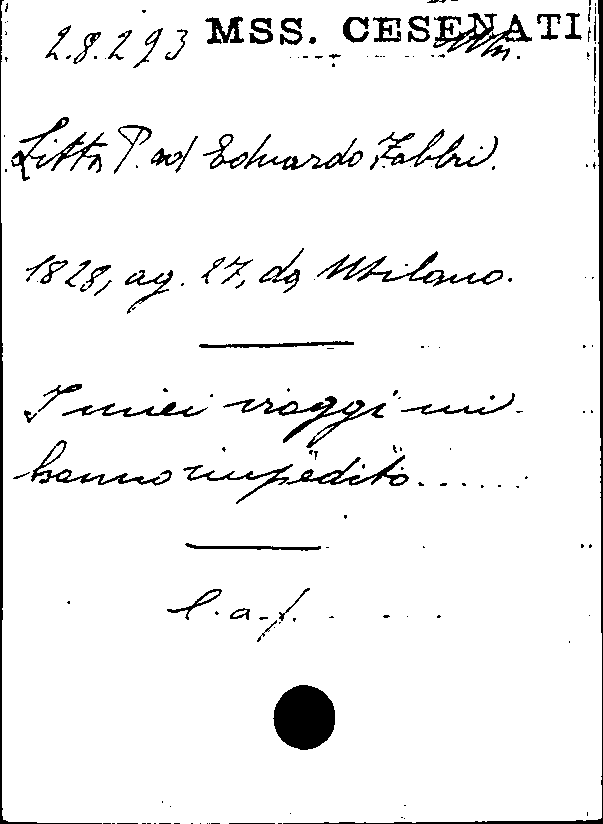 2.8.293 MSS. CESENATI
Litta P. ad Eduardo Fabbri.
1828, ag. 27, da Milano.
I miei viaggi mi
hanno impedito......
l. a. f. . . . .